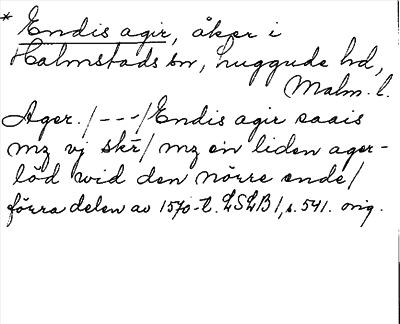 * Endis agir, åker i
Halmstads sn, Luggude hd,
Malm. l.
Ager. /---/ Endis agir saais
mz vj skr̄ / mz ein liden ager-
löd wid den nörre ende /
förra delen av 1570-t. LSLB 1, s. 541. orig.